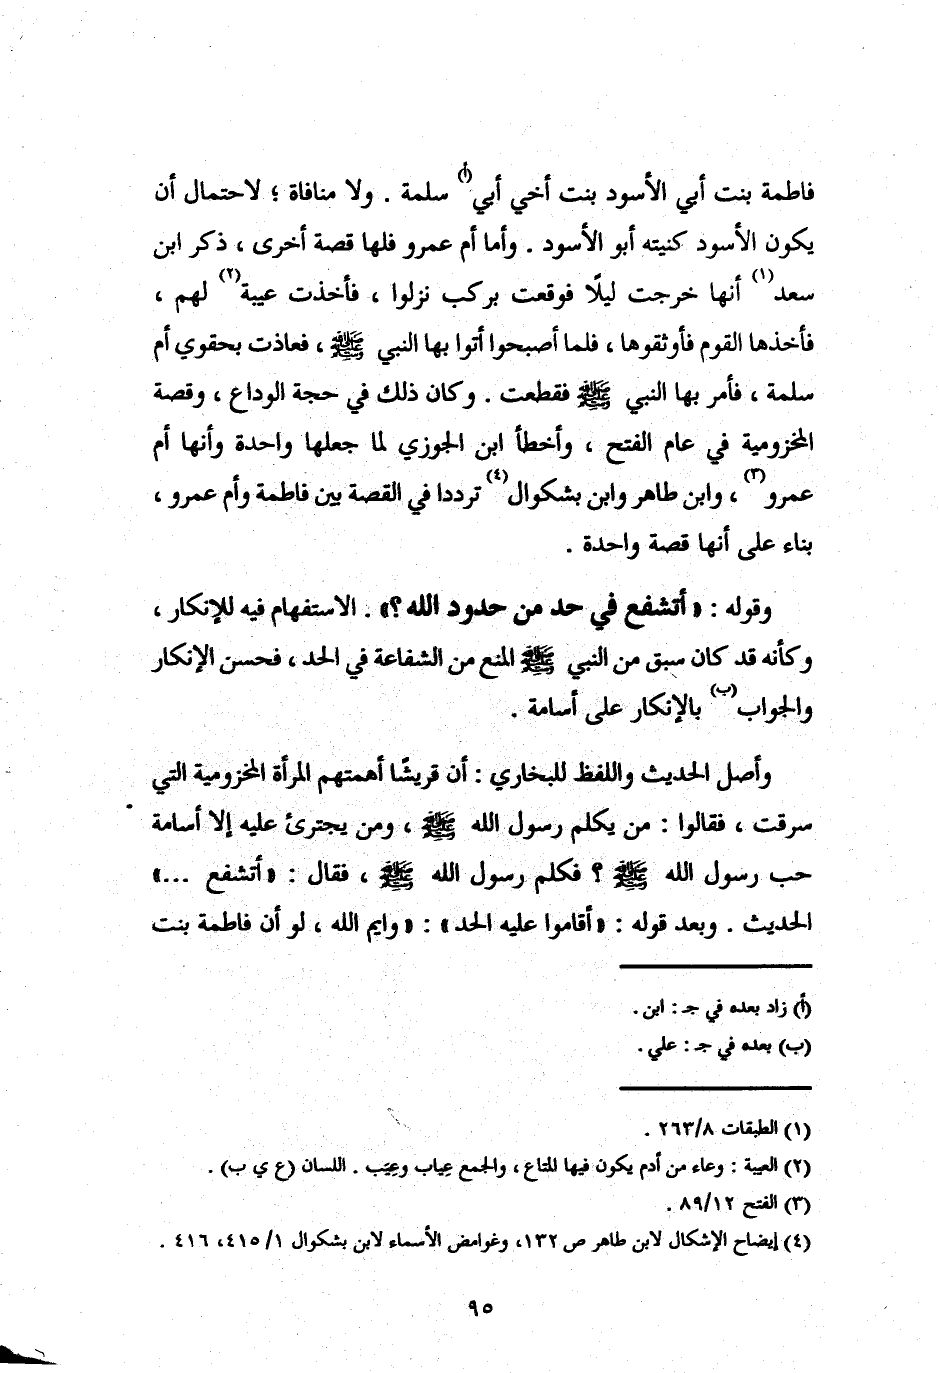 فاطمة بنت أبي الأسود بنت أخي أبي(أ) سلمة . ولا منافاة ؛ لاحتمال أن
يكون الأسود كنيته أبو الأسود . وأما أم عمرو فلها قصة أخرى ، ذكر ابن
سعد(١) أنها خرجت ليلًا فوقعت بركب نزلوا ، فأخذت عيبة(٢) لهم ،
فأخذها القوم فأوثقوها ، فلما أصبحوا أتوا بها النبي ﷺ ، فعاذت بحقوي أم
سلمة ، فأمر بها النبي ﷺ فقطعت . وكان ذلك في حجة الوداع ، وقصة
المخزومية في عام الفتح ، وأخطأ ابن الجوزي لما جعلها واحدة وأنها أم
عمرو(٣) ، وابن طاهر وابن بشكوال(٤) ترددا في القصة بين فاطمة وأم عمرو ،
بناء على أنها قصة واحدة .
وقوله : « أتشفع في حد من حدود الله ؟» . الاستفهام فيه للإنكار ،
وكأنه قد كان سبق من النبي ﷺ المنع من الشفاعة في الحد ، فحسن الإنكار
والجواب(ب) بالإنكار على أسامة .
وأصل الحديث واللفظ للبخاري : أن قريشًا أهمتهم المرأة المخزومية التي
سرقت ، فقالوا : من يكلم رسول الله ﷺ ، ومن يجترئ عليه إلا أسامة
حب رسول الله ﷺ ؟ فكلم رسول الله ﷺ ، فقال : « أتشفع ...»
الحديث . وبعد قوله : « أقاموا عليه الحد» : « وايم الله ، لو أن فاطمة بنت
(أ) زاد بعده في جـ : ابن .
(ب) بعده في جـ : علي .
(١) الطبقات ٢٦٣/٨ .
(٢) العيبة : وعاء من أدم يكون فيها المتاع ، والجمع عِياب وعِيَب . اللسان (ع ي ب) .
(٣) الفتح ٨٩/١٢ .
(٤) إيضاح الإشكال لابن طاهر ص ١٣٢، وغوامض الأسماء لابن بشكوال ٤١٥/١، ٤١٦ .
٩٥